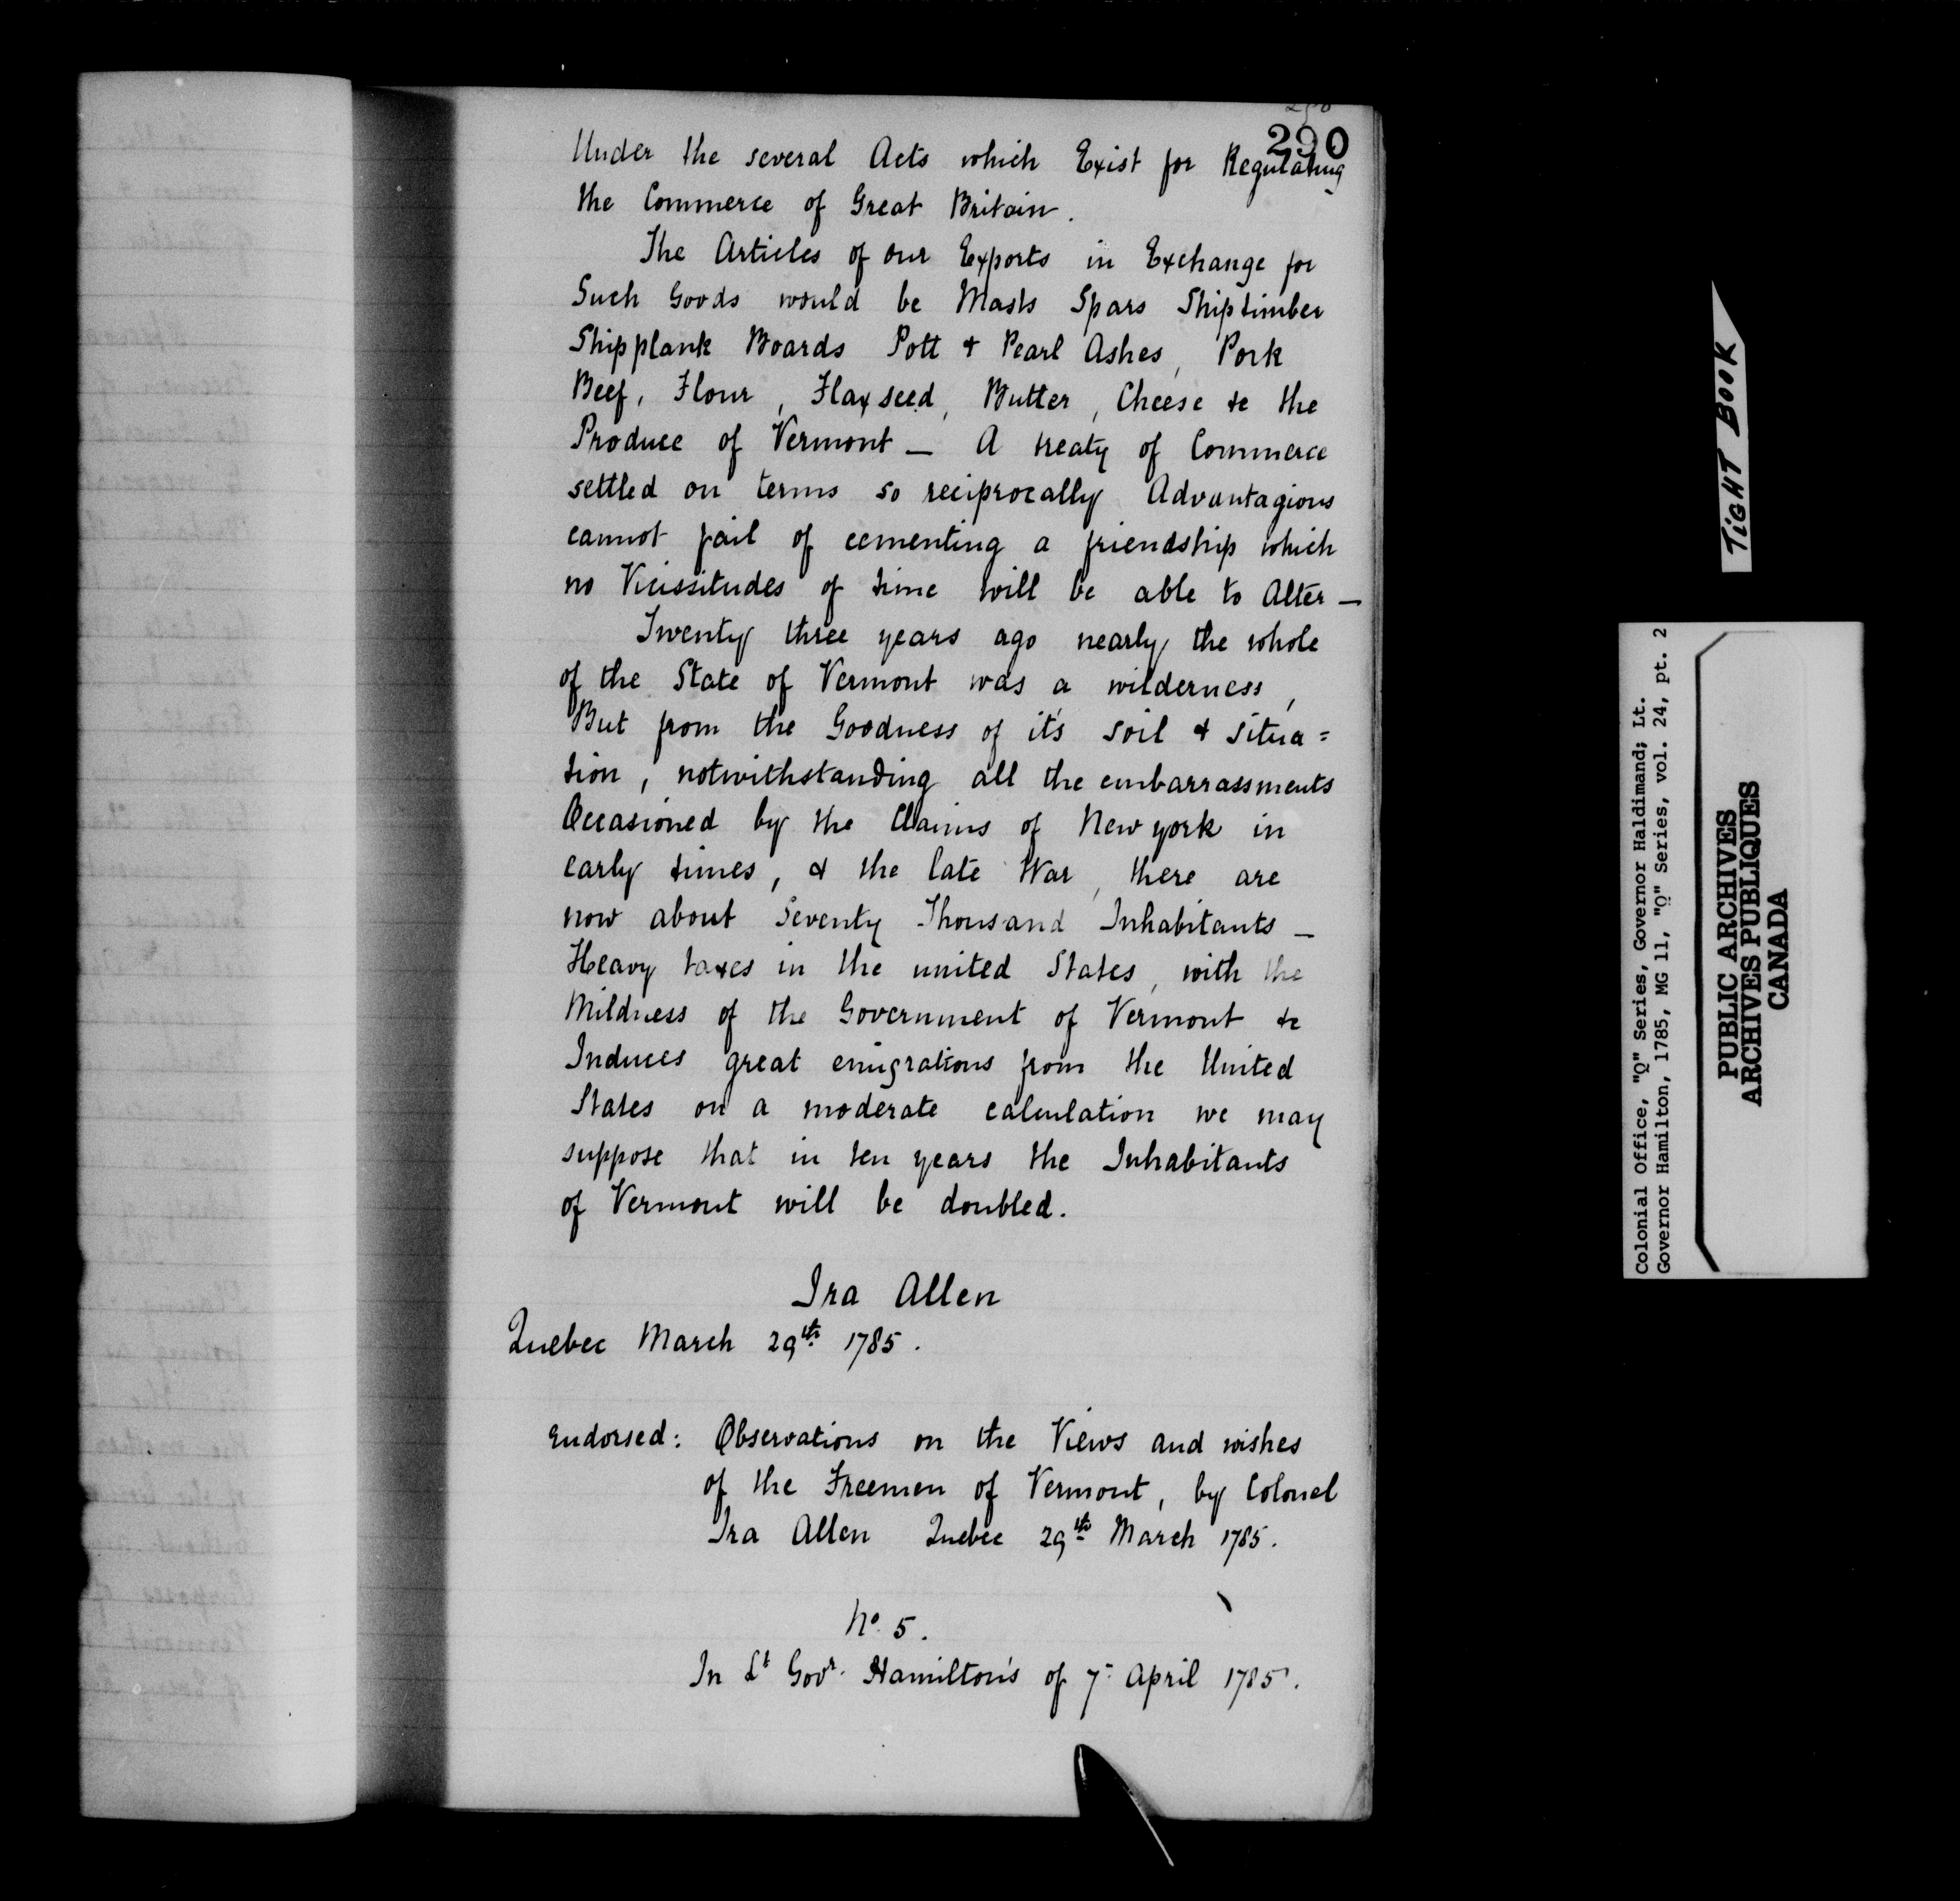 290
Under the several Acts which Exist for Regulating
the Commerce of Great Britain.
The Articles of our Exports in Exchange for
Such Goods would be Masts Spars Shiptimber
Shipplank Boards Pott & Pearl Ashes, Pork
Beef, Flour, Flaxseed, Butter, Cheese &c the
Produce of Vermont — A treaty of Commerce
settled on terms so reciprocally Advantagious
cannot fail of cementing a friendship which
no Vicissitudes of time will be able to Alter —
Twenty three years ago nearly the whole
of the State of Vermont was a wilderness,
But from the Goodness of it's soil & situa=
tion, notwithstanding all the embarrassments
Occasioned by the Claims of New york in
early times, & the late War, there are
now about Seventy Thousand Inhabitants —
Heavy taxes in the united States, with the
Mildness of the Government of Vermont &c
Induces great emigrations from the United
States on a moderate calculation we may
suppose that in ten years the Inhabitants
of Vermont will be doubled.
Ira Allen
Quebec March 29th 1785.
Endorsed: Observations on the Views and wishes
of the Freemen of Vermont, by Colonel
Ira Allen Quebec 29th March 1785.
No. 5.
In Lt Govr. Hamilton's of 7- April 1785.
TIGHT BOOK
Colonial Office, "Q" Series, Governor Haldimand; Lt.
Governor Hamilton, 1785, MG 11, "Q" Series, vol. 24, pt. 2
PUBLIC ARCHIVES
ARCHIVES PUBLIQUES
CANADA